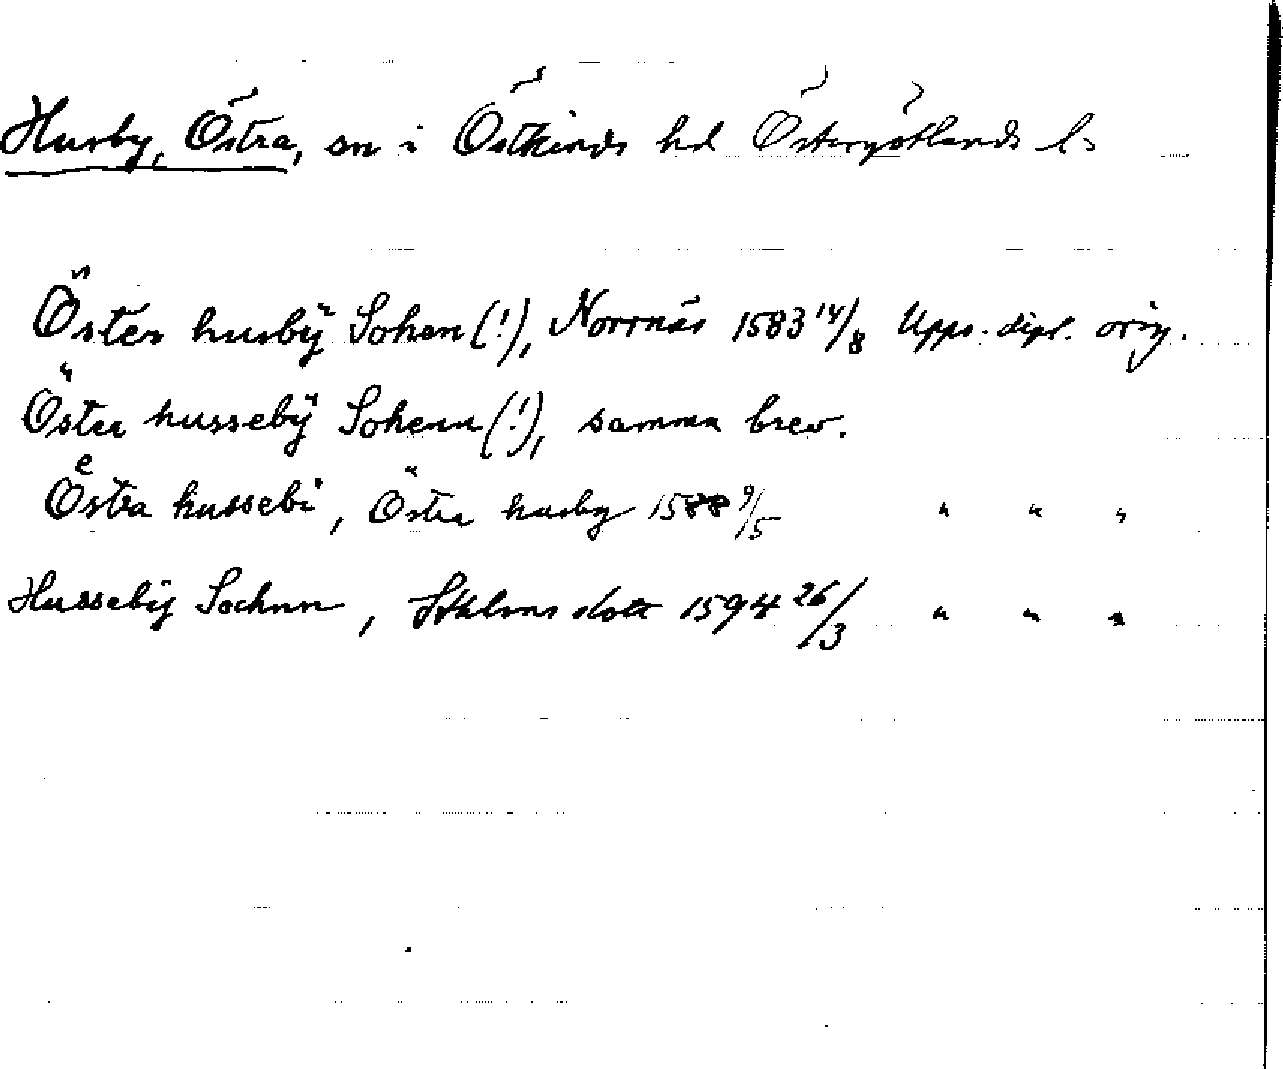 Husby, Östra, sn i Östkinds hd Östergötlands l.
Öster husbÿ Soken (!), Norrnäs 1583 14/8 Upps. dipl. orig.
Östra hussebÿ Sokenn (!), samma brev.
Oͤstra hussebi, Östra husby 1588 9/5 " " "
Hussebÿ Sochnn, Sthlms slott 1594 26/3 " " "